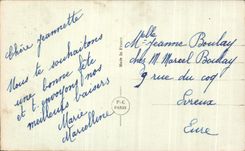 Chère Jeannette
Nous te souhaitons
une bonne fête
et t'envoyons nos
meilleurs baisers
Marie
Marcelline
P-C
PARIS
Melle Jeanne Boulay
chez M. Marcel Boulay
9 rue du coq
Evreux
Eure